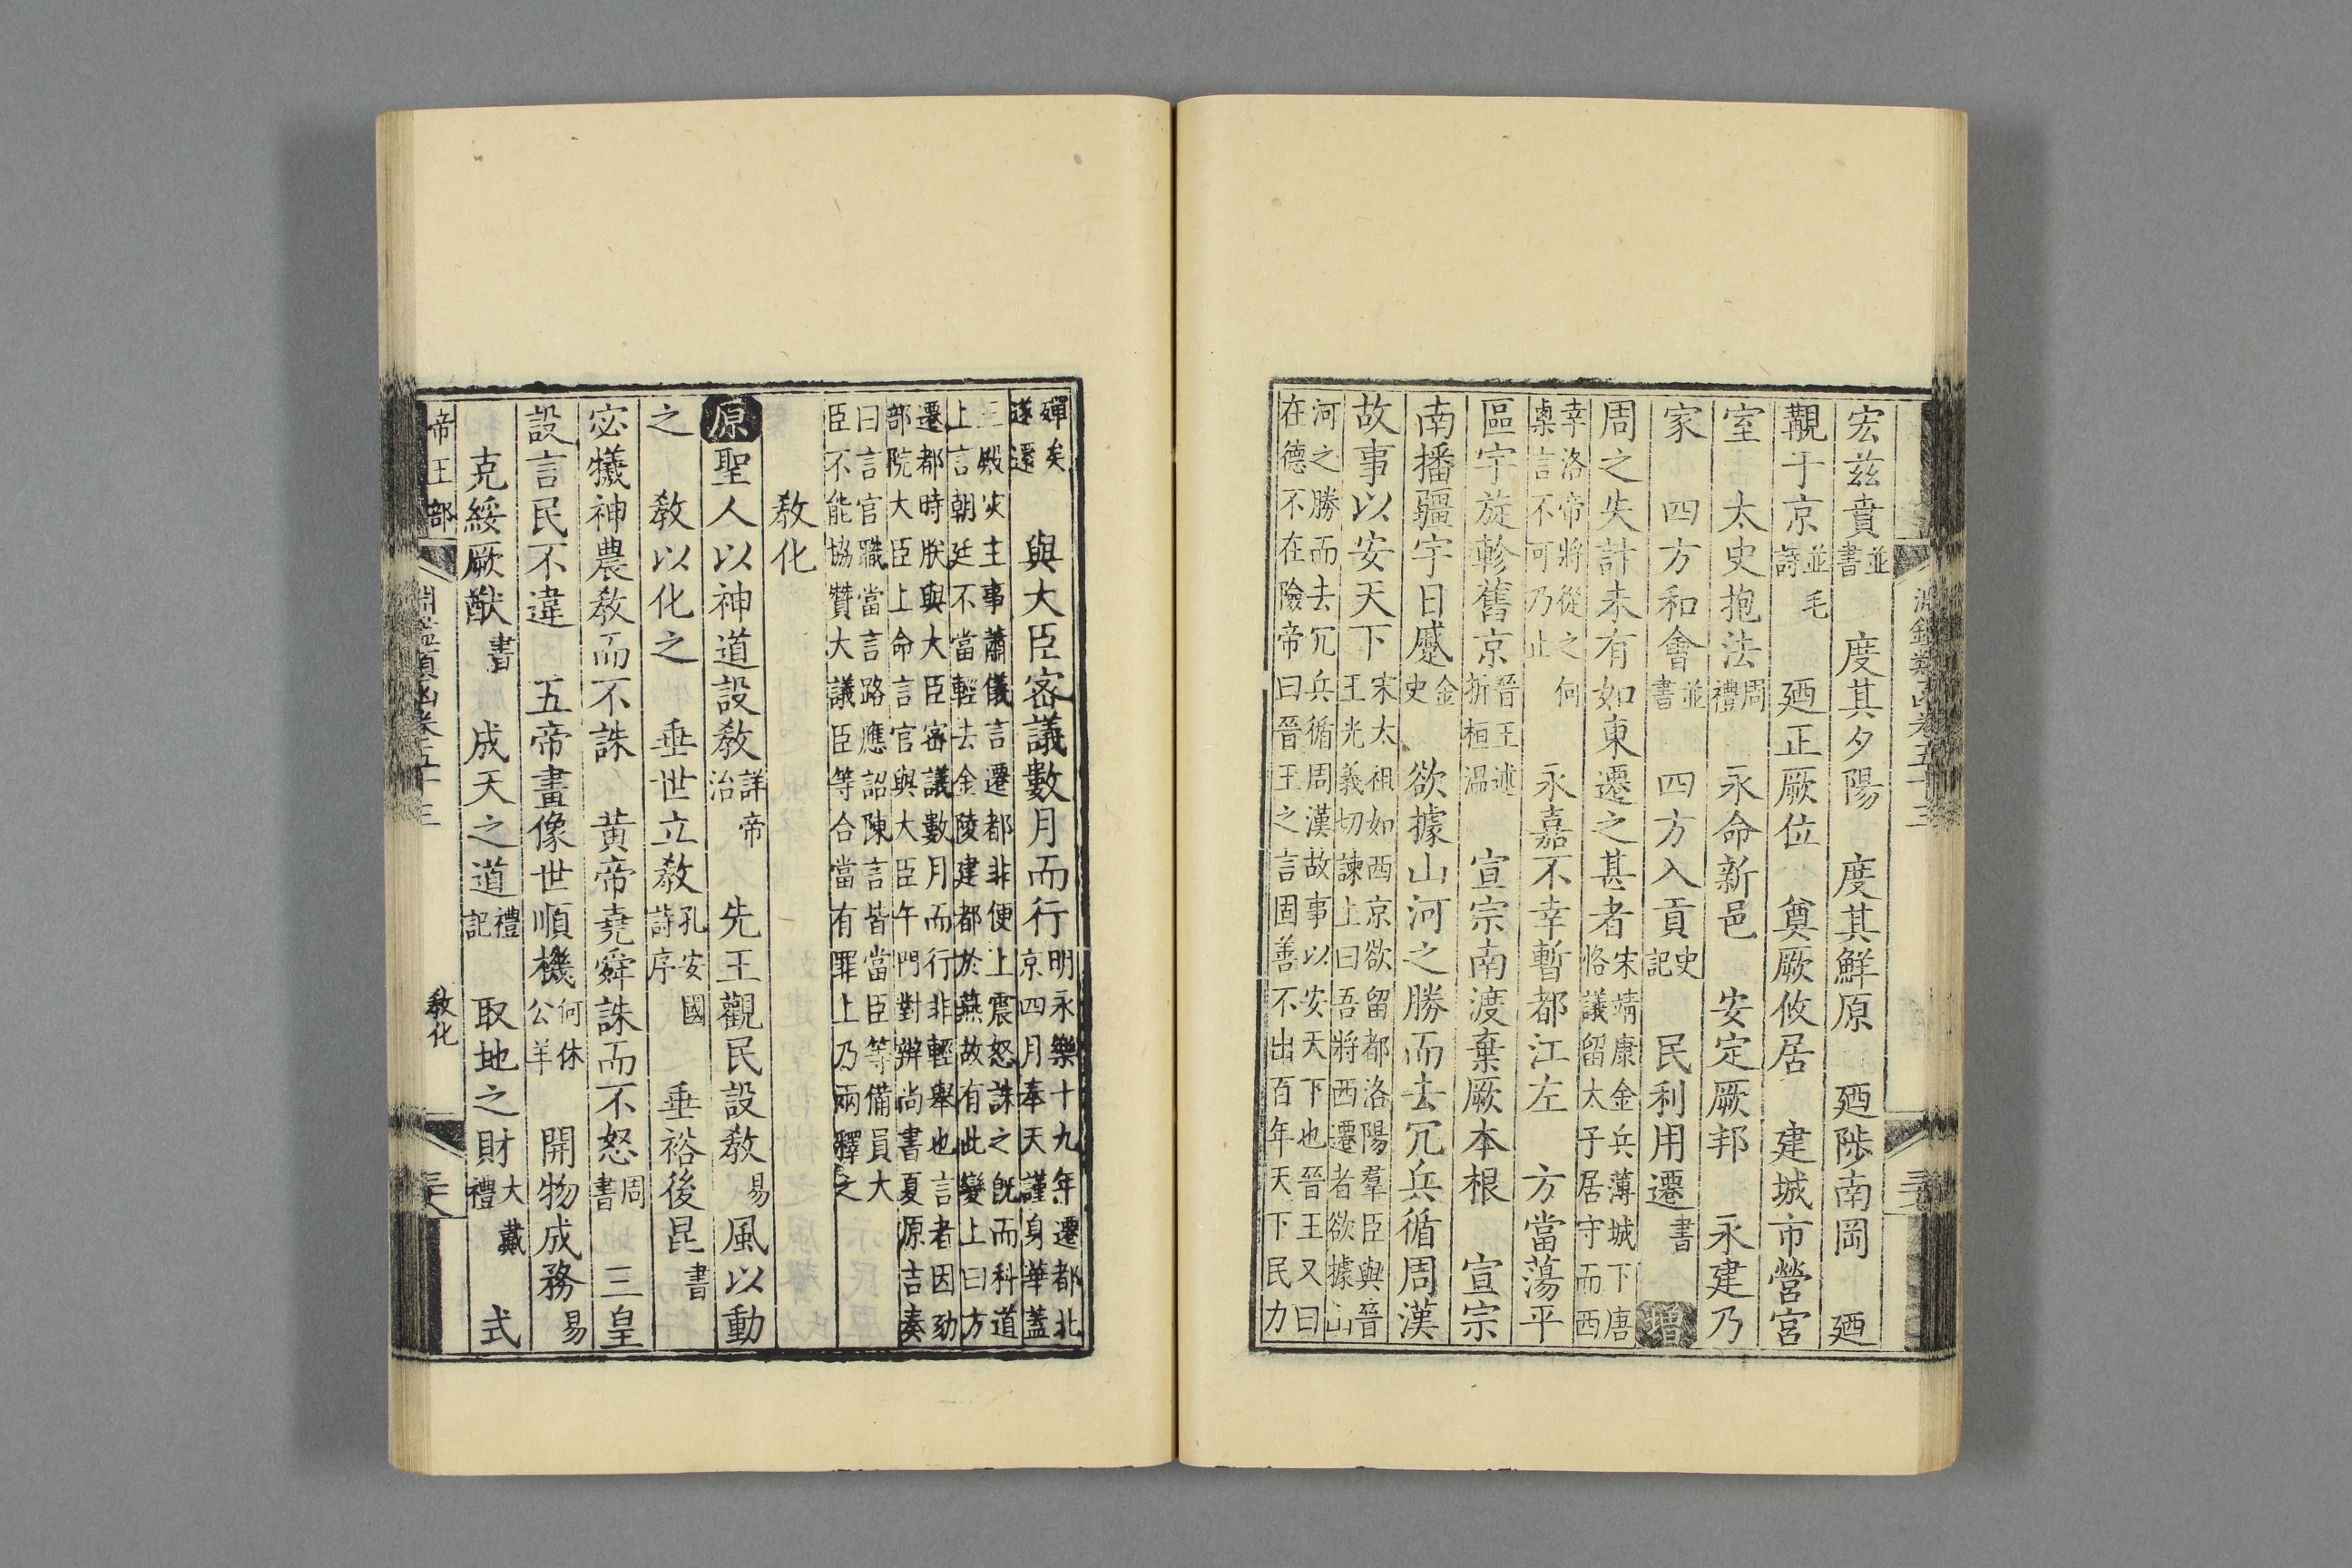 淵鑑類函卷五十三
宏茲賁並書 度其夕陽 度其鮮原 廼陟南岡 廼
覯于京並毛詩 廼正厥位 奠厥攸居 建城市營宮
室 太史抱法周禮 永命新邑 安定厥邦 永建乃
家 四方和會並書 四方入貢史記 民利用遷書 增
周之失計未有如東遷之甚者宋靖康金兵薄城下唐
恪議留太子居守而西
幸洛帝將從之何
㮚言不可乃止 永嘉不幸暫都江左 方當蕩平
區宇旋軫舊京晉王述折桓温 宣宗南渡棄厥本根 宣宗
南播疆宇日蹙金史 欲據山河之勝而去冗兵循周漢
故事以安天下宋太祖如西京欲留都洛陽羣臣與晉
王光義切諫上曰吾將西遷者欲據山
河之勝而去冗兵循周漢故事以安天下也晉王又曰
在德不在險帝曰晉王之言固善不出百年天下民力
殫矣
遂還 與大臣密議數月而行明永樂十九年遷都北
京四月奉天謹身華蓋
三殿灾主事蕭儀言遷都非便上震怒誅之旣而科道
上言朝廷不當輕去金陵建都於燕故有此變上曰方
遷都時朕與大臣密議數月而行非輕舉也言者因劾
部院大臣上命言官與大臣午門對辨尚書夏原吉奏
曰言官職當言路應詔陳言皆當臣等備員大
臣不能協贊大議臣等合當有罪上乃兩釋之
教化
原聖人以神道設教詳帝治 先王觀民設教易 風以動
之 教以化之 垂世立教孔安國詩序 垂裕後昆書
宓犧神農教而不誅 黃帝堯舜誅而不怒周書 三皇
設言民不違 五帝畫像世順機何休公羊 開物成務易
克綏厥猷書 成天之道禮記 取地之財大戴禮 式
帝王部 淵鑑類函卷五十三 教化